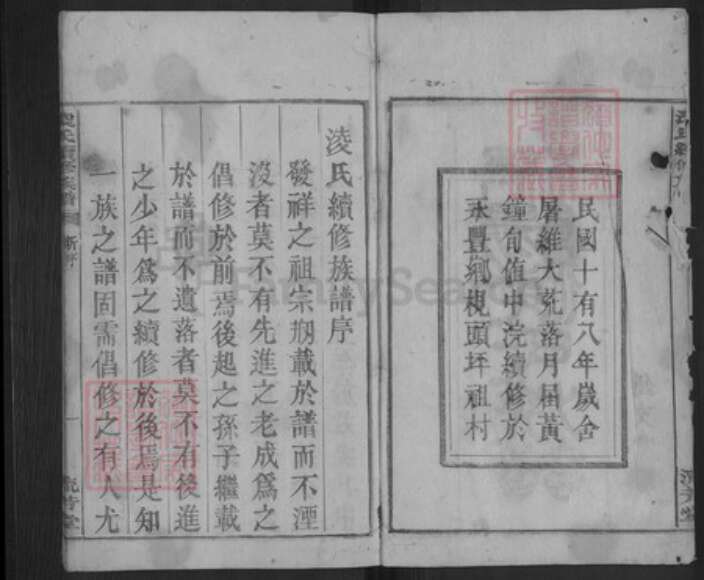 民國十有八年歲舍
屠維大荒落月届黃
鐘旬值中浣續修於
永豐鄉梘頭坪祖村
凌氏續修族譜序
發祥之祖宗剏載於譜而不湮
沒者莫不有先進之老成爲之
倡修於前焉後起之孫子繼載
於譜而不遺落者莫不有後進
之少年爲之續修於後焉是知
一族之譜固需倡修之有人尤
FamilySearch